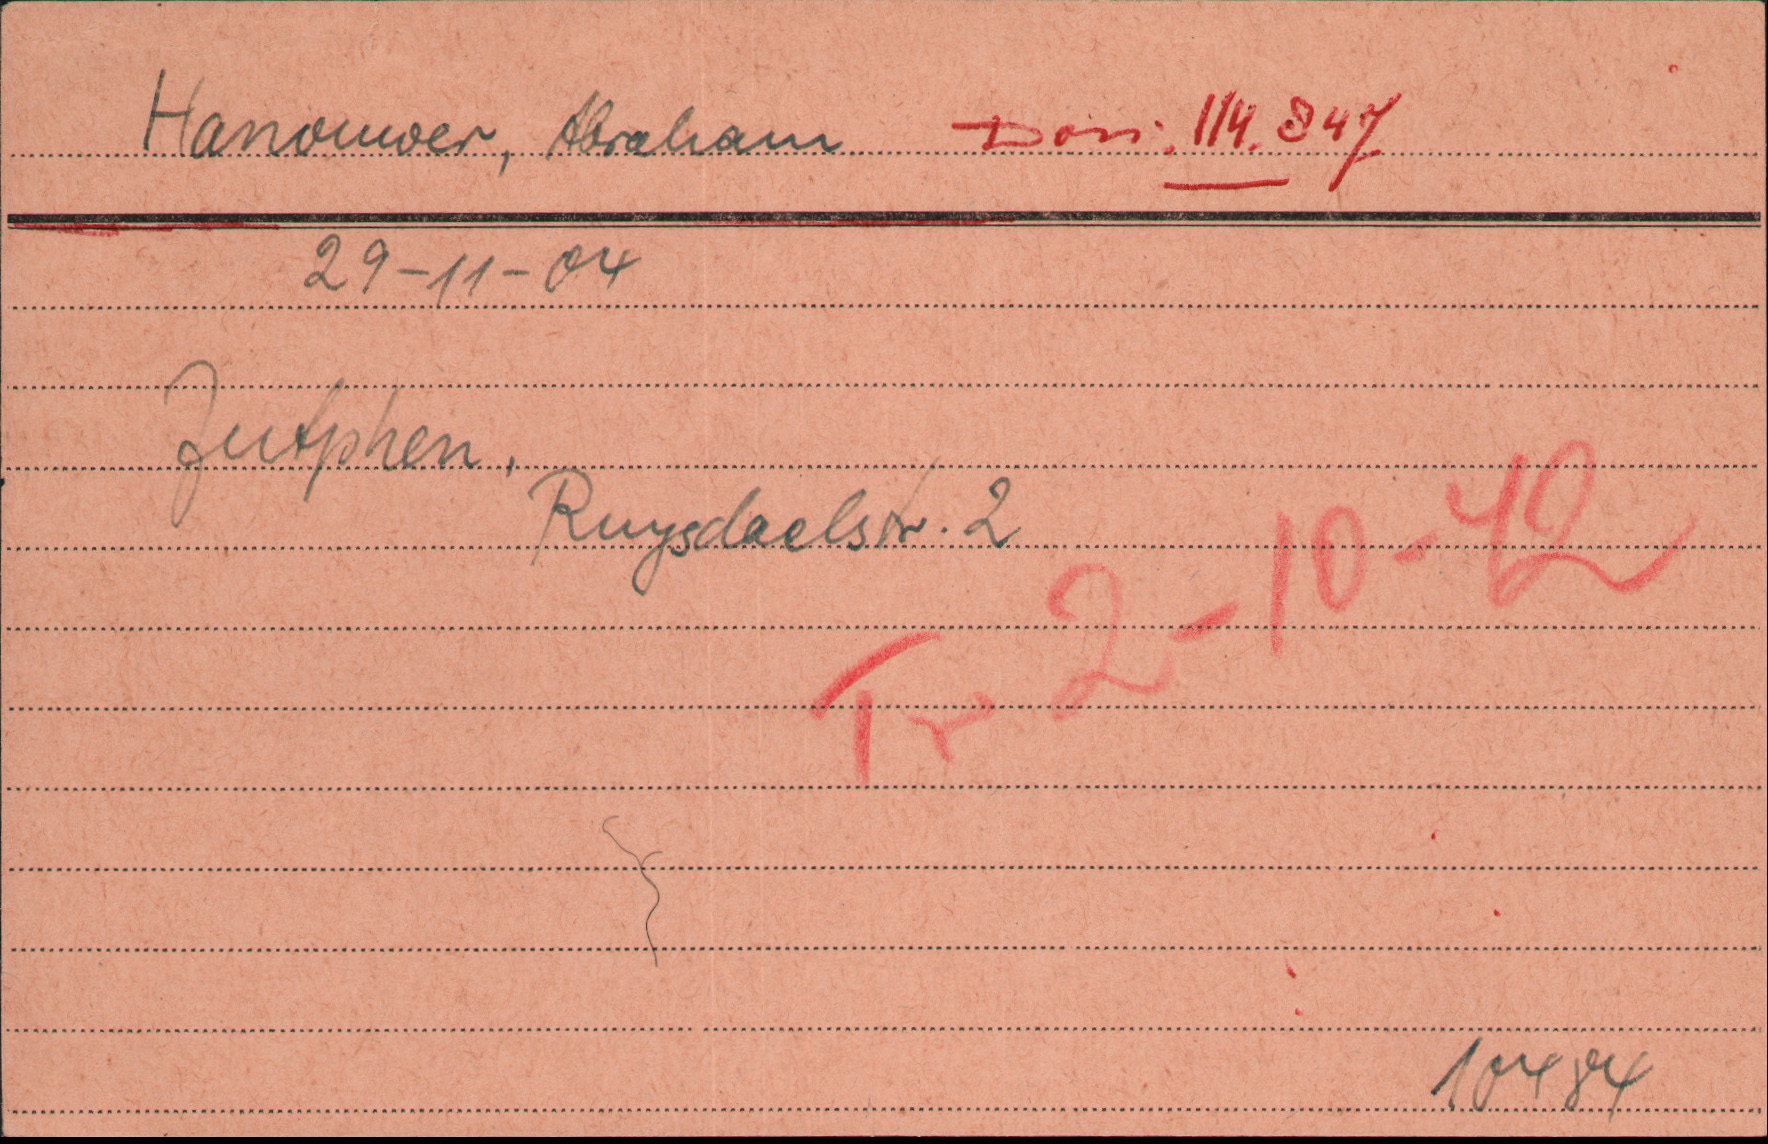 Hanouwer, Abraham Doss: 114.847
29-11-04
Zutphen,
Ruysdaelstr. 2
Tr. 2-10-42
10484